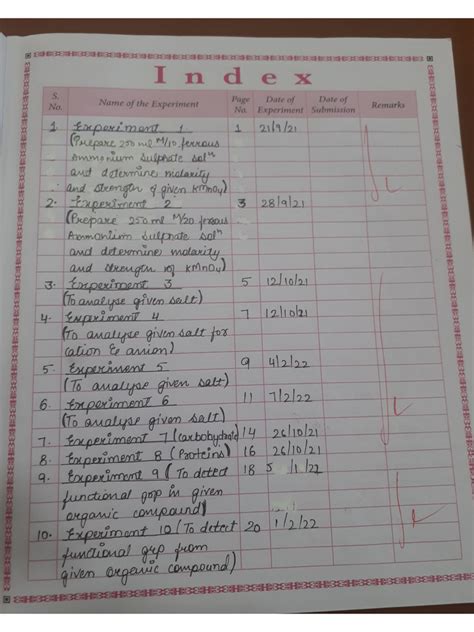 Index
S. No. Name of the Experiment Page No. Date of Experiment Date of Submission Remarks
1. Experiment 1 1 21/9/21
(Prepare 250 ml M/10 ferrous
Ammonium sulphate solⁿ
and determine molarity
and strength of given KMnO4)
2. Experiment 2 3 28/9/21
(Prepare 250 ml M/20 ferrous
Ammonium sulphate solⁿ
and determine molarity
and strength of KMnO4)
3. Experiment 3 5 12/10/21
(To analyse given salt)
4. Experiment 4 7 12/10/21
(To analyse given salt for
cation & anion)
5. Experiment 5 9 4/2/22
(To analyse given salt)
6. Experiment 6 11 7/2/22
(To analyse given salt)
7. Experiment 7 (Carbohydrate) 14 26/10/21
8. Experiment 8 (Proteins) 16 26/10/21
9. Experiment 9 (To detect 18 5 /1/22
functional grop in given
organic compound)
10. Experiment 10 (To detect 20 1/2/22
functional grp from
given organic compound)